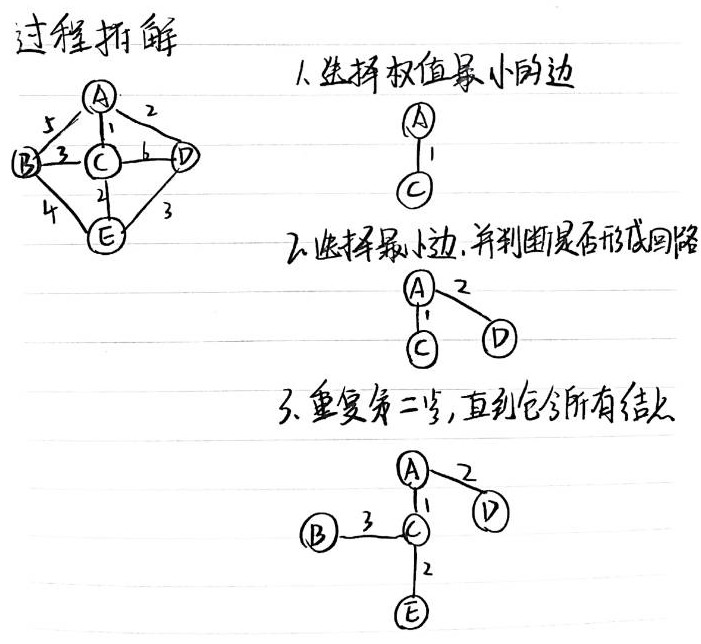 过程拆解
A
5
1
2
B
3
C
6
D
2
4
3
E
1.选择权值最小的边
A
1
C
2.选择最小边,并判断是否形成回路
A
2
1
C
D
3.重复第二步,直到包含所有结点
A
2
1
D
B
3
C
2
E